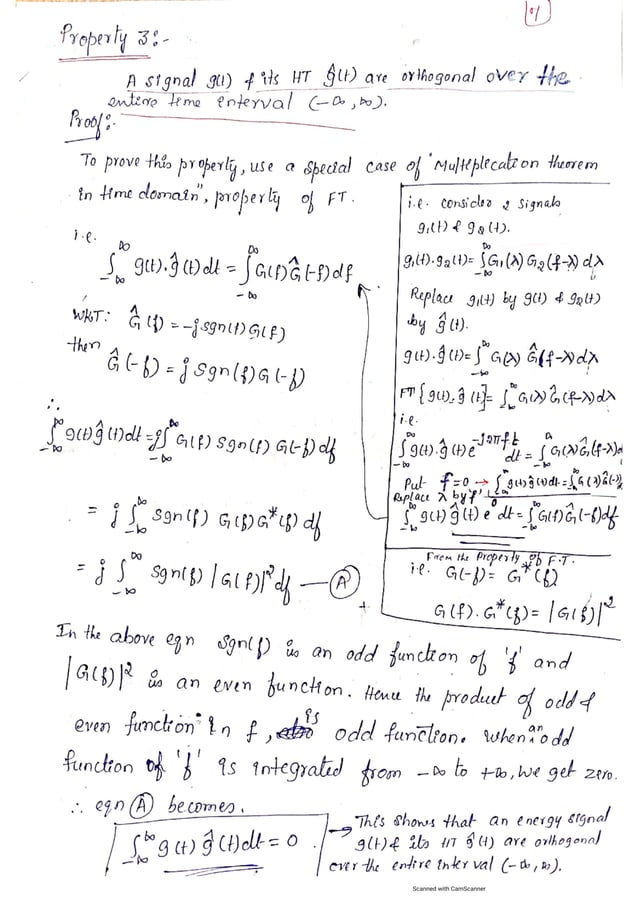 01
Property 3:-
A signal g(t) & its HT ĝ(t) are orthogonal over the
entire time interval (-∞, ∞).
Proof:-
To prove this property, use a special case of "Multiplecation theorem
in time domain", property of FT.
i.e.
∫_{-∞}^{∞} g(t).ĝ(t)dt = ∫_{-∞}^{∞} G(f)Ĝ(-f)df
WKT: Ĝ(f) = -j sgn(f)G(f)
then
Ĝ(-f) = j sgn(f)G(-f)
∴
∫_{-∞}^{∞} g(t)ĝ(t)dt = j∫_{-∞}^{∞} G(f) sgn(f) G(-f)df
= j ∫_{-∞}^{∞} sgn(f) G(f)G*(f) df
= j ∫_{-∞}^{∞} sgn(f) |G(f)|² df — (A)
i.e. consider 2 signals
g₁(t) & g₂(t).
g₁(t).g₂(t) = ∫_{-∞}^{∞} G₁(λ) G₂(f-λ) dλ
Replace g₁(t) by g(t) & g₂(t)
by ĝ(t).
g(t).ĝ(t) = ∫_{-∞}^{∞} G(λ) Ĝ(f-λ)dλ
FT{g(t).ĝ(t)] = ∫_{-∞}^{∞} G(λ) Ĝ(f-λ)dλ
i.e.
∫_{-∞}^{∞} g(t).ĝ(t) e^{-j2πft} dt = ∫_{-∞}^{∞} G(λ)Ĝ(f-λ)d
Put f=0 → ∫_{-∞}^{∞} g(t)ĝ(t)dt = ∫_{-∞}^{∞} G(λ)Ĝ(-λ)
Replace λ by 'f'
∫_{-∞}^{∞} g(t) ĝ(t) e⁰ dt = ∫_{-∞}^{∞} G(f)Ĝ(-f)df
From the Property of F.T.
i.e. G(-f) = G*(f)
G(f).G*(f) = |G(f)|²
In the above eqn sgn(f) is an odd function of 'f' and
|G(f)|² is an even function. Hence the product of odd &
even function in f, is odd function. When an odd
function of 'f' is integrated from -∞ to +∞, we get zero.
∴ eqn (A) becomes.
∫_{-∞}^{∞} g(t) ĝ(t)dt = 0
→ This shows that an energy signal
g(t) & its HT ĝ(t) are orthogonal
over the entire interval (-∞, ∞).
Scanned with CamScanner